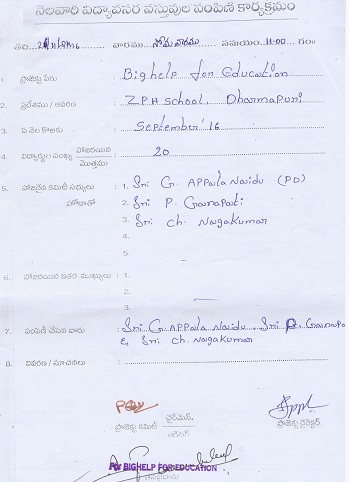 నెలవారి విద్యావసర వస్తువుల పంపిణీ కార్యక్రమం
తేది వారము సోమవారము సమయం 11-00 గం॥
1. ప్రాజెక్టు పేరు : Bighelp for Education
2. ప్రదేశము / ఆవరణ : ZPH School, Dharmapuri
3. ఏ నెల కొఱకు : September '16
4. విద్యార్థుల సంఖ్య హాజరయిన / మొత్తము : 20
5. హాజరైన కమిటీ సభ్యులు : 1. Sri G. APPala Naidu (PD)
హోదాతో 2. Sri P. Ganapati
3. Sri Ch. Nagakumar
4.
5.
6. హాజరయిన ఇతర ముఖ్యులు : 1.
2.
3.
7. పంపిణీ చేసిన వారు : Sri G. APPala Naidu, Sri P. Ganapa
& Sri Ch. Nagakumar
8. వివరణ / సూచనలు :
ప్రాజెక్టు కమిటీ చైర్మన్ ప్రాజెక్టు డైరెక్టర్
For BIGHELP FOR EDUCATION